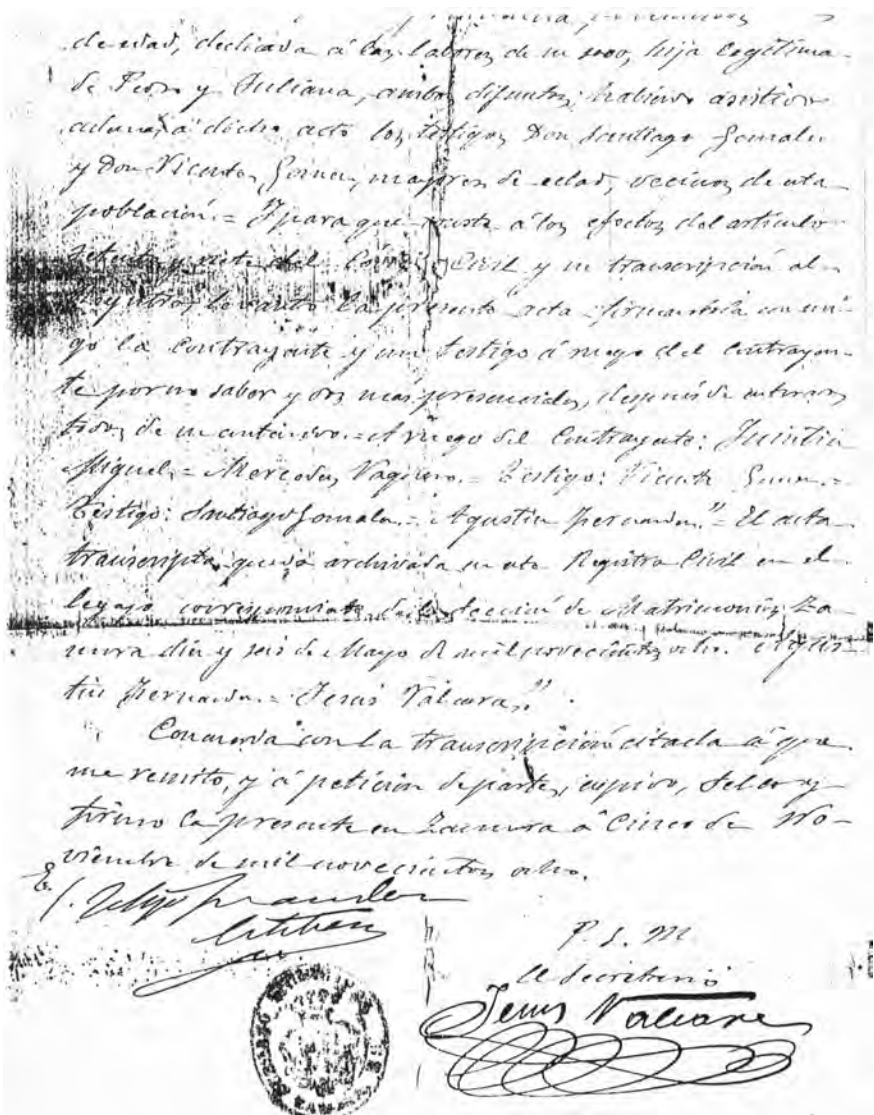 de edad, dedicada á las labores de su sexo, hija legítima
de Pedro y Juliana, ambos difuntos; habiendo asistido
además á dicho acto los testigos Don Santiago Gonzalez
y Don Vicente Gomez, mayores de edad, vecinos de esta
población.= Y para que conste á los efectos del artículo
setenta y siete del Código Civil y su transcripción al
Registro, levanto la presente acta firmandola con mi-
go la contrayente y un testigo á ruego del contrayen-
te por no saber y dos más presenciales, después de enterados
todos de su contenido.= A ruego del Contrayente: Quintin
Miguel.= Mercedes Vaquero.= Testigo: Vicente Gomez.=
Testigo: Santiago Gonzalez.= Agustin Hernandez."= El acta
transcripta queda archivada en este Registro Civil en el
legajo correspondiente de la Sección de Matrimonios. Za-
mora diez y seis de Mayo de mil novecientos ocho. Agus-
tin Hernandez.= Jesus Valcarce."
Concuerda con la transcripción citada á que
me remito, y á petición de parte, expido, sello y
firmo la presente en Zamora á Cinco de No-
viembre de mil novecientos ocho.
P. S. M.
El Secretario
Jesus Valcarce